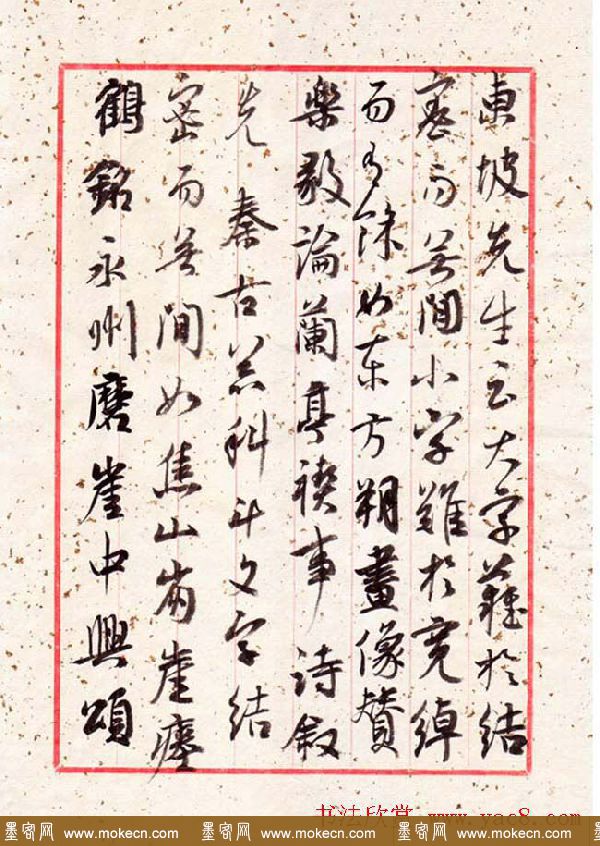 東坡先生云大字難於結
密而無間小字難於寬綽
而有餘如東方朔畫像贊
樂毅論蘭亭禊事詩敘
先 秦古器科斗文字結
密而無間如焦山崩崖瘞
鶴銘永州磨崖中興頌
书法欣赏 www.yac8.com
墨客网 www.mokecn.com 墨客网 www.mokecn.com 墨客网 www.mokecn.com